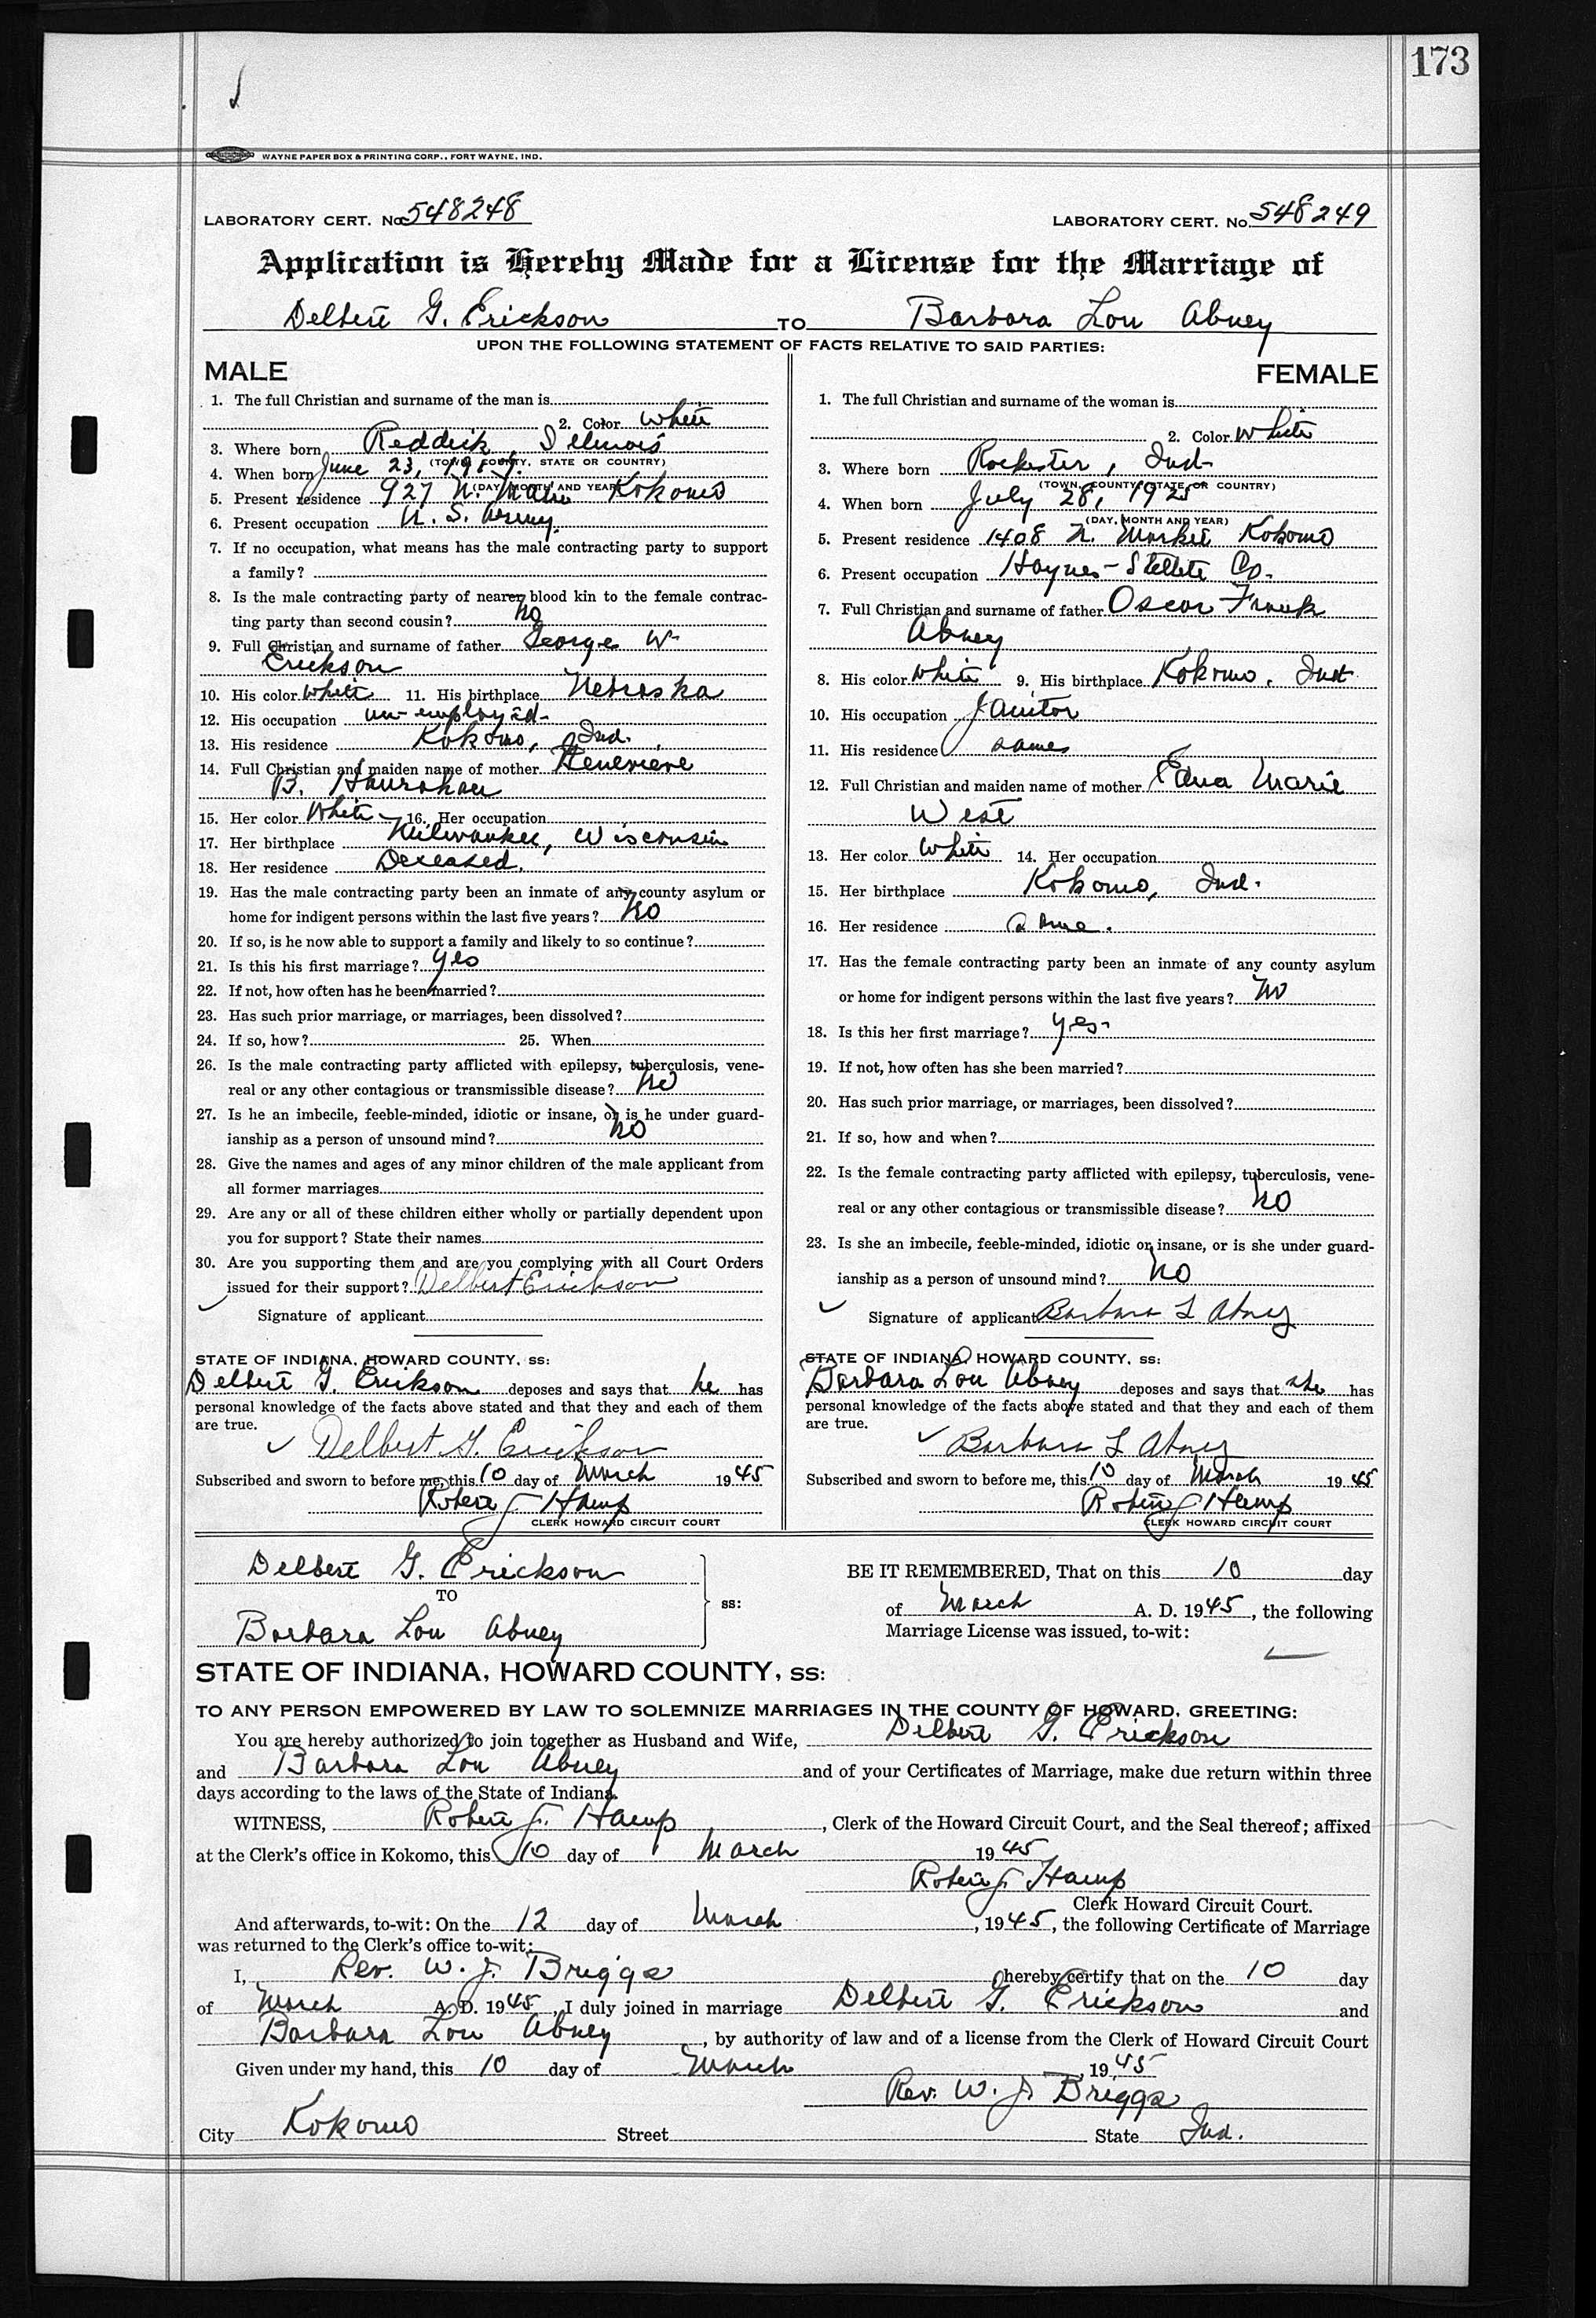 173
WAYNE PAPER BOX & PRINTING CORP., FORT WAYNE, IND.
LABORATORY CERT. No. 548248 LABORATORY CERT. No. 548249
Application is Hereby Made for a License for the Marriage of
Delbert G. Erickson TO Barbara Lou Abney
UPON THE FOLLOWING STATEMENT OF FACTS RELATIVE TO SAID PARTIES:
MALE
1. The full Christian and surname of the man is
2. Color White
3. Where born Reddick Illinois
(TOWN, COUNTY, STATE OR COUNTRY)
4. When born June 23,
(DAY, MONTH AND YEAR)
5. Present residence 927 N. Main Kokomo
6. Present occupation U. S. Army.
7. If no occupation, what means has the male contracting party to support
a family?
8. Is the male contracting party of nearer blood kin to the female contrac-
ting party than second cousin? No
9. Full Christian and surname of father George W
Erickson
10. His color White 11. His birthplace Nebraska
12. His occupation un-employed-
13. His residence Kokomo, Ind.
14. Full Christian and maiden name of mother Genevieve
B. Hanrahan
15. Her color White 16. Her occupation
17. Her birthplace Milwaukee, Wisconsin
18. Her residence Deceased.
19. Has the male contracting party been an inmate of any county asylum or
home for indigent persons within the last five years? No
20. If so, is he now able to support a family and likely to so continue?
21. Is this his first marriage? yes
22. If not, how often has he been married?
23. Has such prior marriage, or marriages, been dissolved?
24. If so, how? 25. When
26. Is the male contracting party afflicted with epilepsy, tuberculosis, vene-
real or any other contagious or transmissible disease? No
27. Is he an imbecile, feeble-minded, idiotic or insane, or is he under guard-
ianship as a person of unsound mind? No
28. Give the names and ages of any minor children of the male applicant from
all former marriages
29. Are any or all of these children either wholly or partially dependent upon
you for support? State their names
30. Are you supporting them and are you complying with all Court Orders
issued for their support? Delbert Erickson
Signature of applicant
STATE OF INDIANA, HOWARD COUNTY, ss:
Delbert G. Erickson deposes and says that he has
personal knowledge of the facts above stated and that they and each of them
are true.
Delbert G. Erickson
Subscribed and sworn to before me, this 10 day of March 1945
Robert J Hamp
CLERK HOWARD CIRCUIT COURT
FEMALE
1. The full Christian and surname of the woman is
2. Color White
3. Where born Rochester, Ind
(TOWN, COUNTY, STATE OR COUNTRY)
4. When born July 28, 1925
(DAY, MONTH AND YEAR)
5. Present residence 1408 N. Market Kokomo
6. Present occupation Haynes-Stellite Co.
7. Full Christian and surname of father Oscar Frank
Abney
8. His color White 9. His birthplace Kokomo, Ind
10. His occupation Janitor
11. His residence same
12. Full Christian and maiden name of mother Edna Marie
West
13. Her color White 14. Her occupation
15. Her birthplace Kokomo, Ind.
16. Her residence
17. Has the female contracting party been an inmate of any county asylum
or home for indigent persons within the last five years? No
18. Is this her first marriage? yes-
19. If not, how often has she been married?
20. Has such prior marriage, or marriages, been dissolved?
21. If so, how and when?
22. Is the female contracting party afflicted with epilepsy, tuberculosis, vene-
real or any other contagious or transmissible disease? No
23. Is she an imbecile, feeble-minded, idiotic or insane, or is she under guard-
ianship as a person of unsound mind? No
Signature of applicant Barbara L Abney
STATE OF INDIANA, HOWARD COUNTY, ss:
Barbara Lou Abney deposes and says that she has
personal knowledge of the facts above stated and that they and each of them
are true.
Barbara L Abney
Subscribed and sworn to before me, this 10 day of March 1945
Robert J Hamp
CLERK HOWARD CIRCUIT COURT
Delbert G. Erickson
TO
Barbara Lou Abney
ss:
BE IT REMEMBERED, That on this 10 day
of March A. D. 1945, the following
Marriage License was issued, to-wit:
STATE OF INDIANA, HOWARD COUNTY, ss:
TO ANY PERSON EMPOWERED BY LAW TO SOLEMNIZE MARRIAGES IN THE COUNTY OF HOWARD, GREETING:
You are hereby authorized to join together as Husband and Wife, Delbert G. Erickson
and Barbara Lou Abney and of your Certificates of Marriage, make due return within three
days according to the laws of the State of Indiana.
WITNESS, Robert J. Hamp, Clerk of the Howard Circuit Court, and the Seal thereof; affixed
at the Clerk's office in Kokomo, this 10 day of March 1945
Robert J. Hamp
Clerk Howard Circuit Court.
And afterwards, to-wit: On the 12 day of March, 1945, the following Certificate of Marriage
was returned to the Clerk's office to-wit:
I, Rev. W. J. Briggs hereby certify that on the 10 day
of March A. D. 1945, I duly joined in marriage Delbert G. Erickson and
Barbara Lou Abney, by authority of law and of a license from the Clerk of Howard Circuit Court
Given under my hand, this 10 day of March, 1945
Rev. W. J. Briggs
City Kokomo Street State Ind.